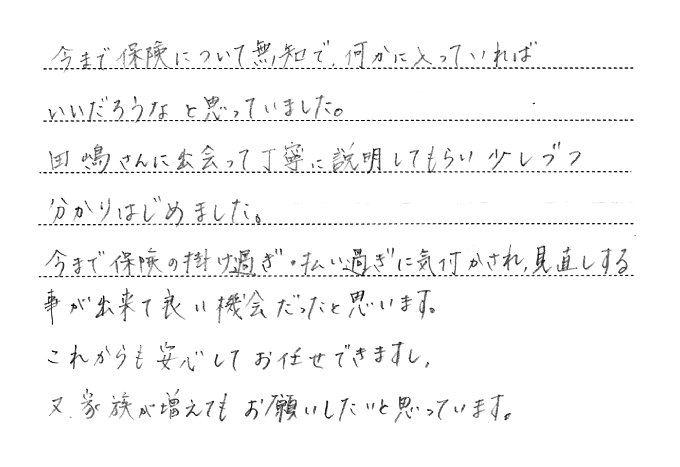 今まで保険について無知で、何かに入っていれば
いいだろうなと思っていました。
田嶋さんに出会って丁寧に説明してもらい少しづつ
分かりはじめました。
今まで保険の掛け過ぎ・払い過ぎに気付かされ、見直しする
事が出来て良い機会だったと思います。
これからも安心してお任せできますし、
又、家族が増えてもお願いしたいと思っています。